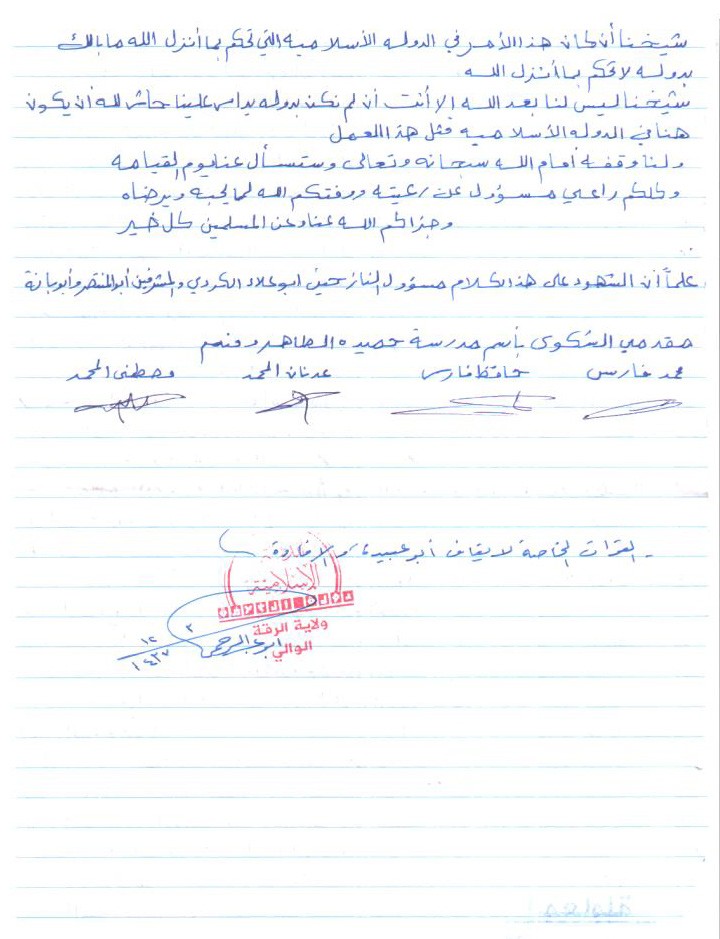 شيخنا أن كان هذا الأمر في الدوله الأسلاميه التي تحكم بما أنزل الله ما بالك
بدوله لا تحكم بما أنزل الله
شيخنا ليس لنا بعد الله إلا أنت أن لم نكن بدوله يداس علينا حاشر لله أن يكون
هنا في الدوله الأسلاميه مثل هذا العمل
ولنا وقفة أمام الله سبحانه وتعالى وستسأل عنا يوم القيامه
وكلكم راعي مسؤول عن رعيته ووفقكم الله لما يحبه ويرضاه
وجزاكم الله عنا وعن المسلمين كل خير
علماً أن الشهود على هذا الكلام مسؤول النازحين ابو علاء الكردي والمشرفين أبو المنتصر وأبو بانة
مقدمي الشكوى بأسم مدرسة حميده الطاهر
محمد فارس حافظ فارس عدنان المحمد مصطفى المحمد
- القرات الخاصة لايقاف أبو عبيدة والإفادة
الإسلامية
ولاية الرقة
الوالي
ابو عبد الرحمن
٢ / ١٢ / ١٤٣٧
معاملة